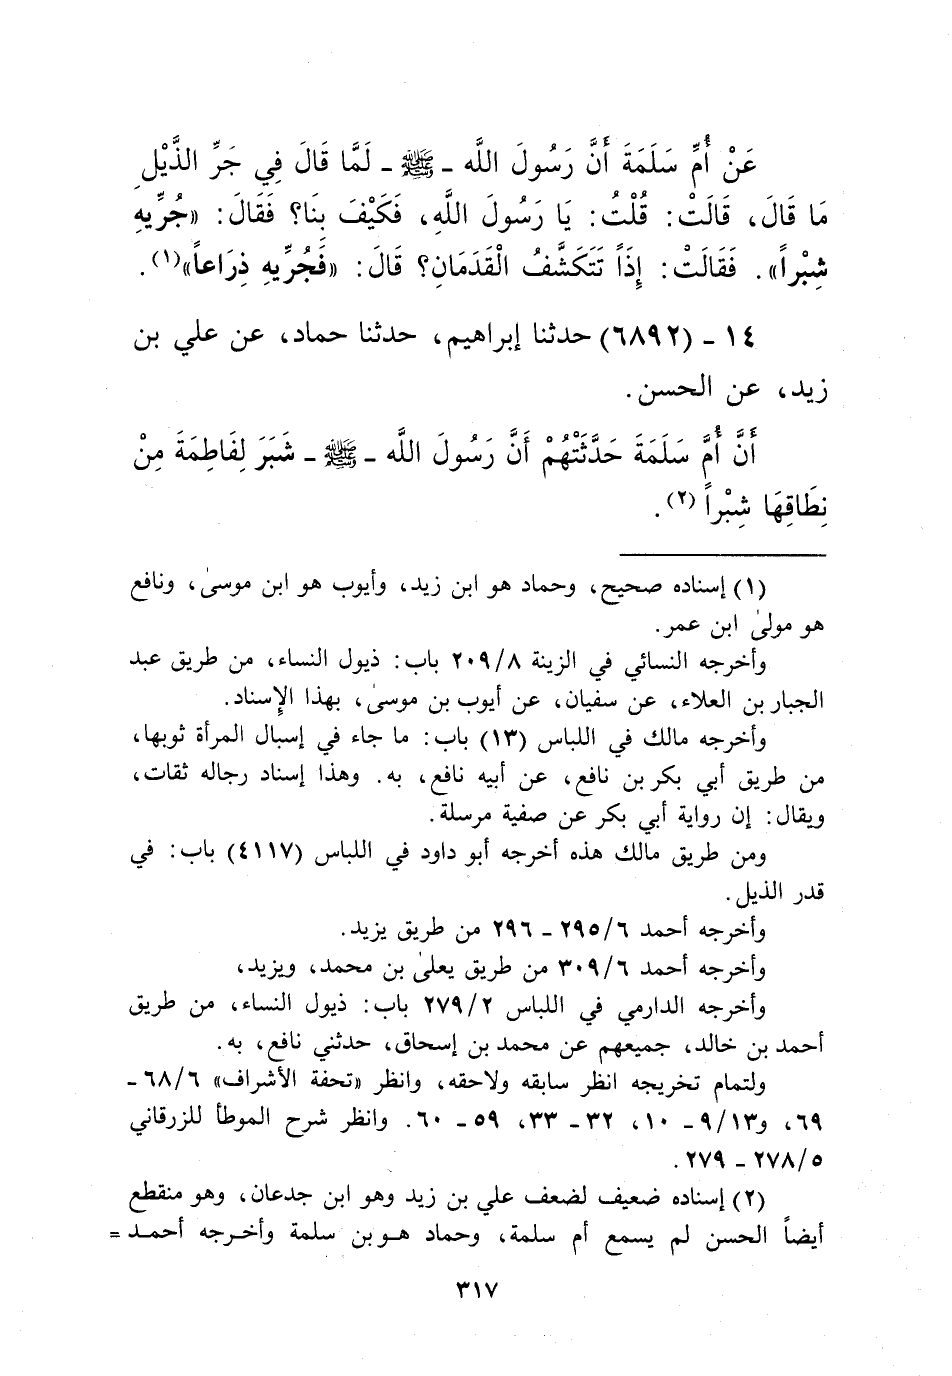 عَنْ أُمِّ سَلَمَةَ أَنَّ رَسُولَ اللَّه ـ ﷺ ـ لَمَّا قَالَ فِي جَرِّ الذَّيْلِ
مَا قَالَ، قَالَتْ: قُلْتُ: يَا رَسُولَ اللَّهِ، فَكَيْفَ بِنَا؟ فَقَالَ: «جُرِّيهِ
شِبْراً». فَقَالَتْ: إِذَاً تَتَكَشَّفُ الْقَدَمَانِ؟ قَالَ: «فَجُرِّيهِ ذِرَاعاً»(١).
١٤ ـ (٦٨٩٢) حدثنا إبراهيم، حدثنا حماد، عن علي بن
زيد، عن الحسن.
أَنَّ أُمَّ سَلَمَةَ حَدَّثَتْهُمْ أَنَّ رَسُولَ اللَّه ـ ﷺ ـ شَبَرَ لِفَاطِمَةَ مِنْ
نِطَاقِهَا شِبْراً (٢).
(١) إسناده صحيح، وحماد هو ابن زيد، وأيوب هو ابن موسىٰ، ونافع
هو مولىٰ ابن عمر.
وأخرجه النسائي في الزينة ٢٠٩/٨ باب: ذيول النساء، من طريق عبد
الجبار بن العلاء، عن سفيان، عن أيوب بن موسىٰ، بهذا الإسناد.
وأخرجه مالك في اللباس (١٣) باب: ما جاء في إسبال المرأة ثوبها،
من طريق أبي بكر بن نافع، عن أبيه نافع، به. وهذا إسناد رجاله ثقات،
ويقال: إن رواية أبي بكر عن صفية مرسلة.
ومن طريق مالك هذه أخرجه أبو داود في اللباس (٤١١٧) باب: في
قدر الذيل.
وأخرجه أحمد ٢٩٥/٦ ـ ٢٩٦ من طريق يزيد.
وأخرجه أحمد ٣٠٩/٦ من طريق يعلىٰ بن محمد، ويزيد،
وأخرجه الدارمي في اللباس ٢٧٩/٢ باب: ذيول النساء، من طريق
أحمد بن خالد، جميعهم عن محمد بن إسحاق، حدثني نافع، به.
ولتمام تخريجه انظر سابقه ولاحقه، وانظر «تحفة الأشراف» ٦٨/٦ ـ
٦٩، و٩/١٣ ـ ١٠، ٣٢ ـ ٣٣، ٥٩ ـ ٦٠. وانظر شرح الموطأ للزرقاني
٢٧٨/٥ ـ ٢٧٩.
(٢) إسناده ضعيف لضعف علي بن زيد وهو ابن جدعان، وهو منقطع
أيضاً الحسن لم يسمع أم سلمة، وحماد هو بن سلمة وأخرجه أحمد =
٣١٧